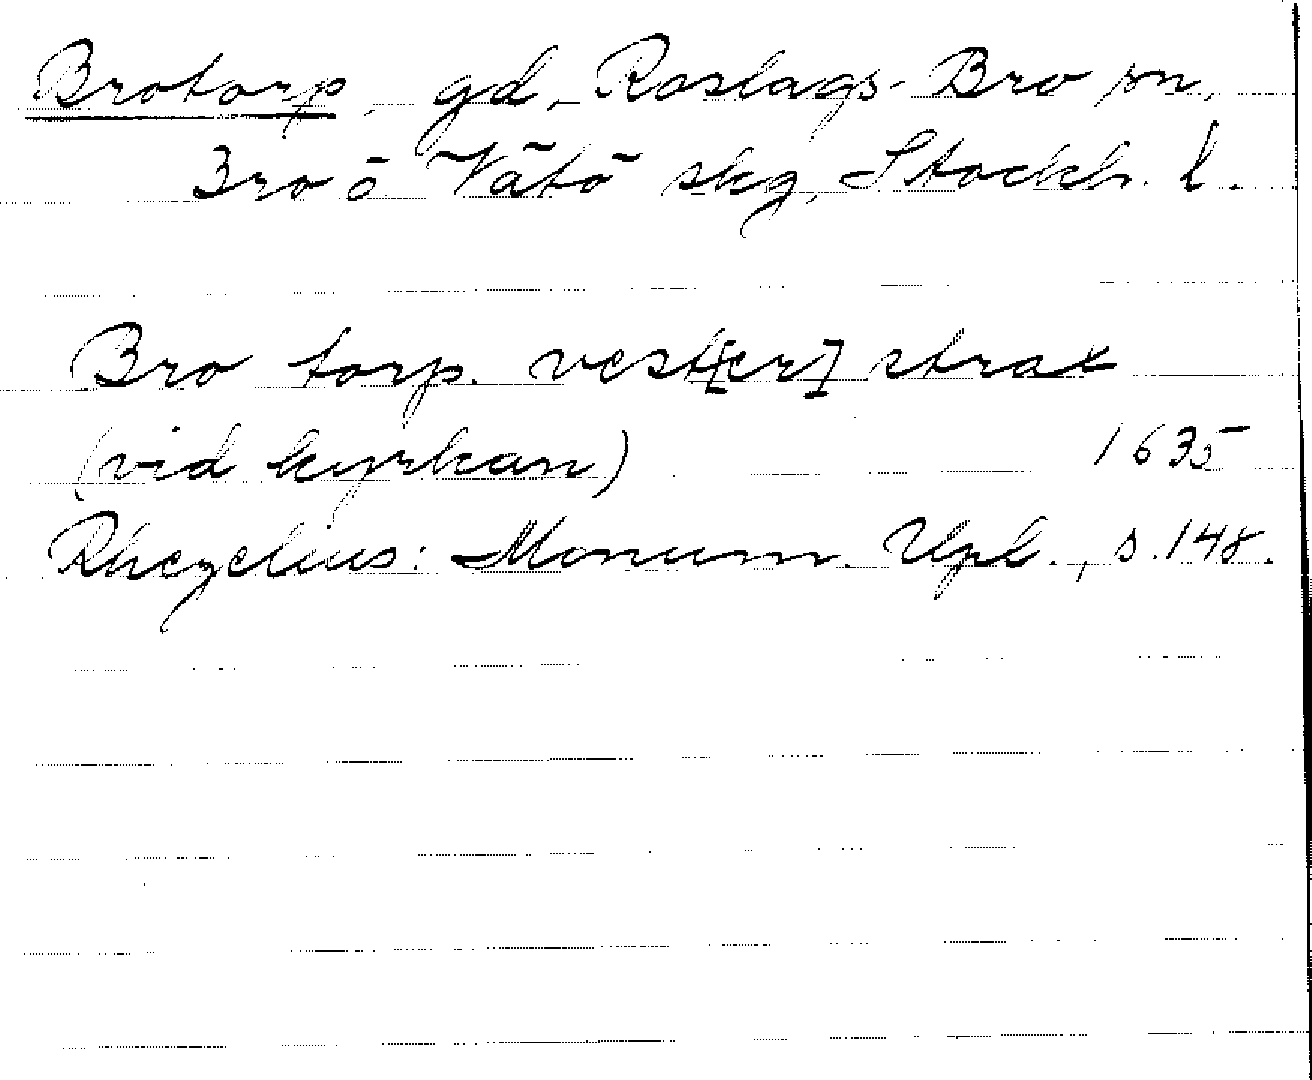 Brotorp, gd, Roslags-Bro sn,
Bro ö Vätö skg, Stockh. l.
Bro torp. vest[er] strax
(vid kyrkan) 1635
Rhezelius: Monum. Upl., s. 148.